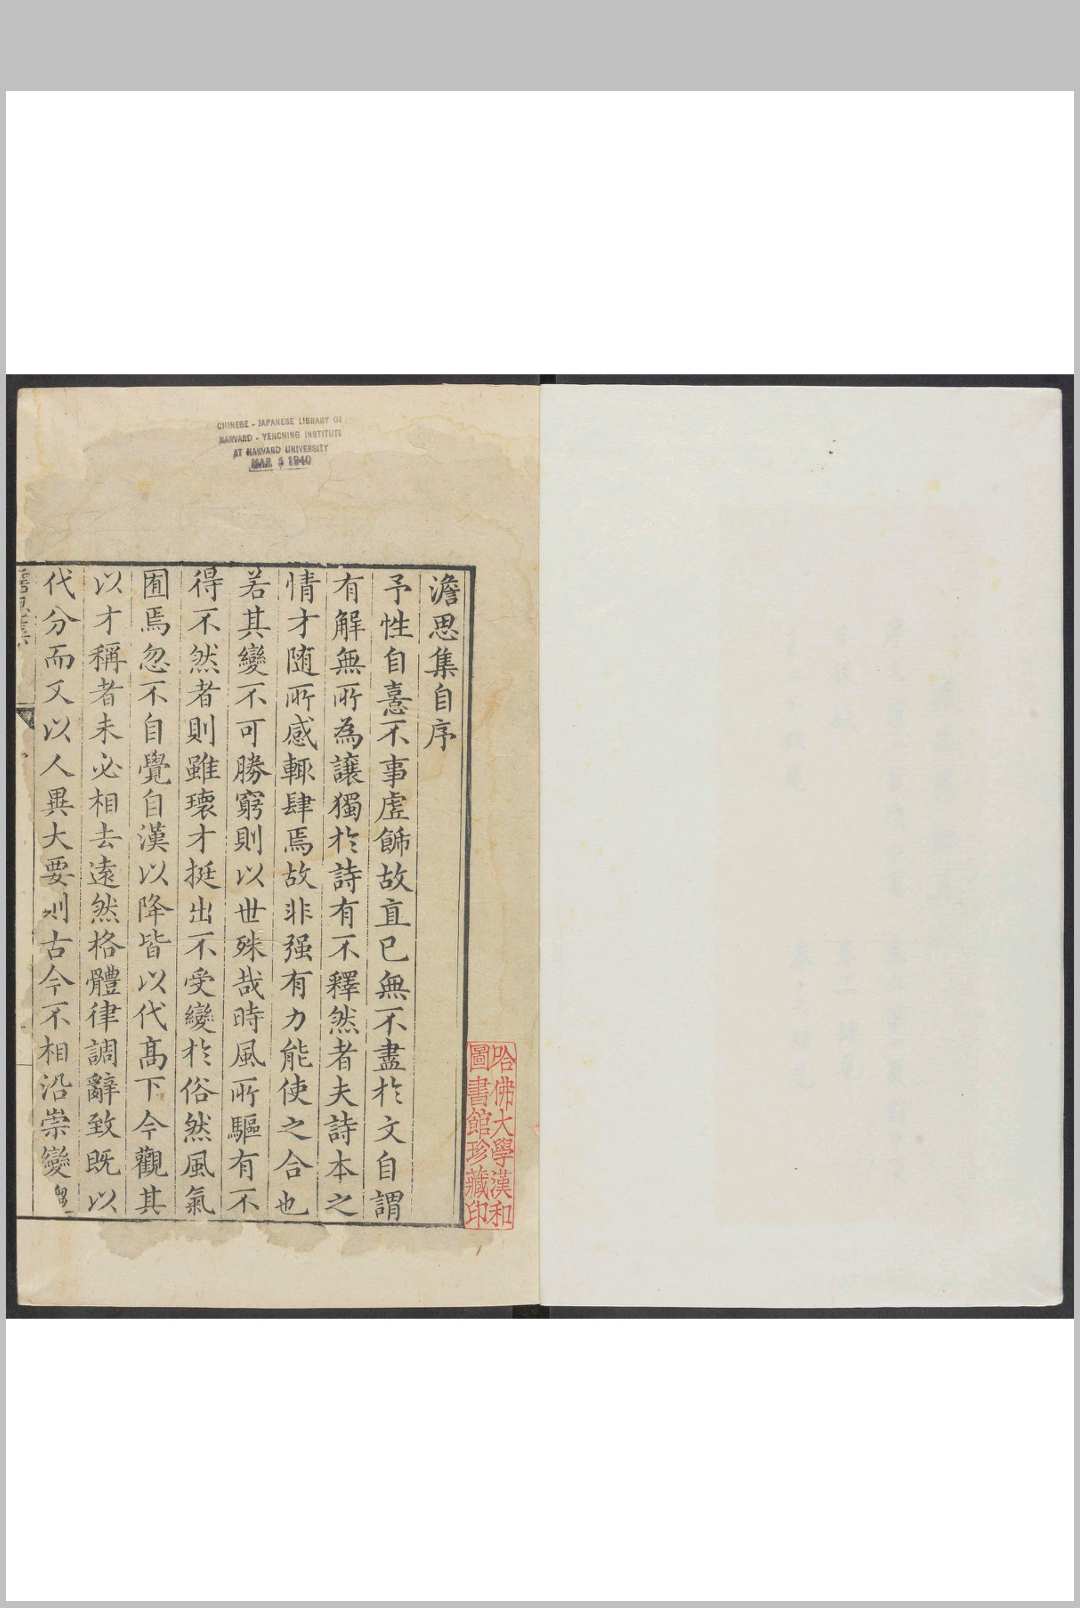 CHINESE - JAPANESE LIBRARY OF
HARVARD - YENCHING INSTITUTE
AT HARVARD UNIVERSITY
MAR 1940
澹思集自序
予性自憙不事虛飾故直已無不盡於文自謂
有解無所為讓獨於詩有不釋然者夫詩本之
情才随所感輒肆焉故非强有力能使之合也
若其變不可勝窮則以世殊哉時風所驅有不
得不然者則雖瓌才挺出不受變於俗然風氣
囿焉忽不自覺自漢以降皆以代髙下今觀其
以才稱者未必相去遠然格體律調辭致既以
代分而又以人異大要則古今不相沿崇變
哈佛大學漢和
圖書館珍藏印